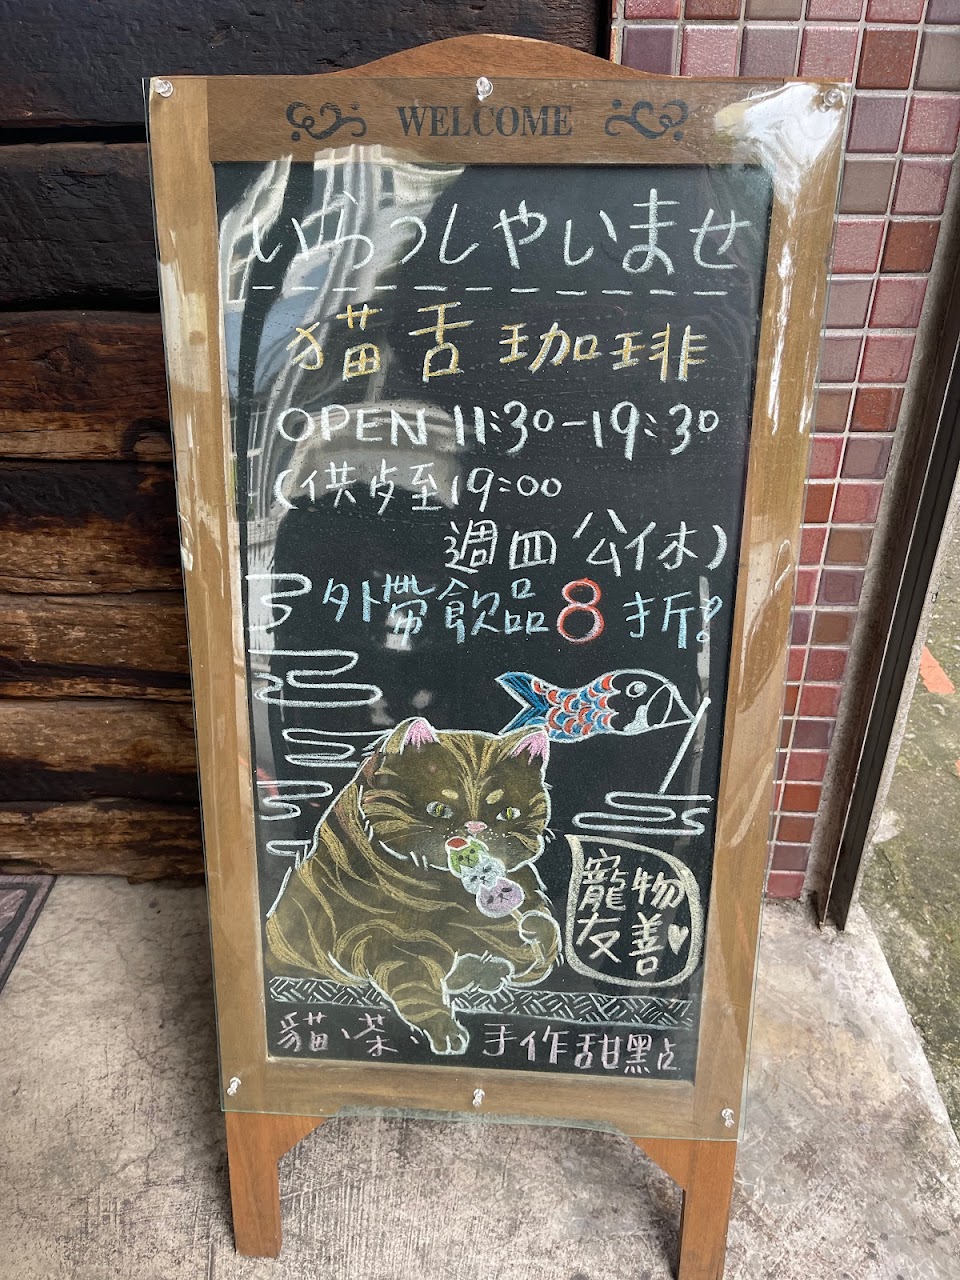 WELCOME
いらっしゃいませ
猫舌珈琲
OPEN 11:30-19:30
(供点至19:00
週四公休)
外帶飲品8折!
寵物
友善
貓、茶、手作甜點